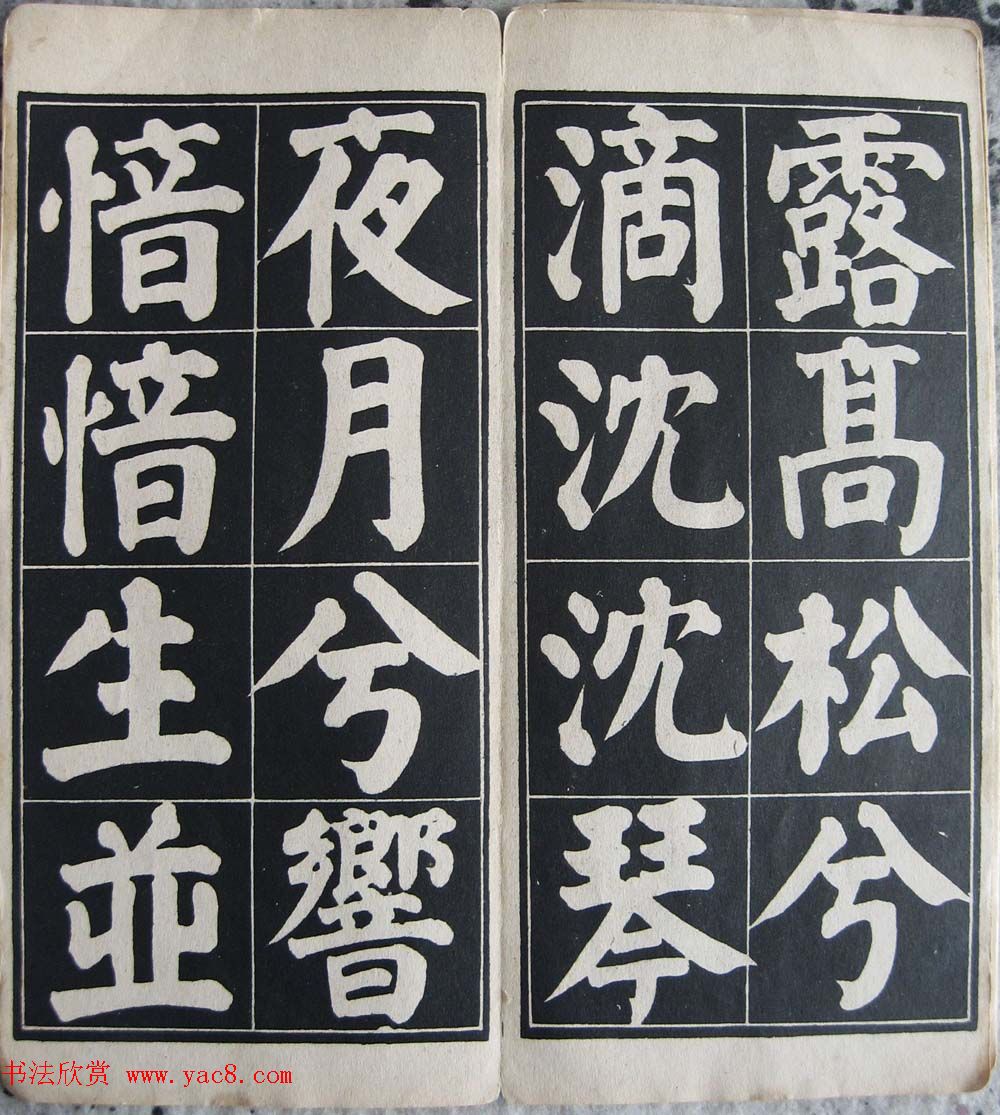 露髙松兮
滴沈沈琴
夜月兮響
愔愔生並
书法欣赏 www.yac8.com